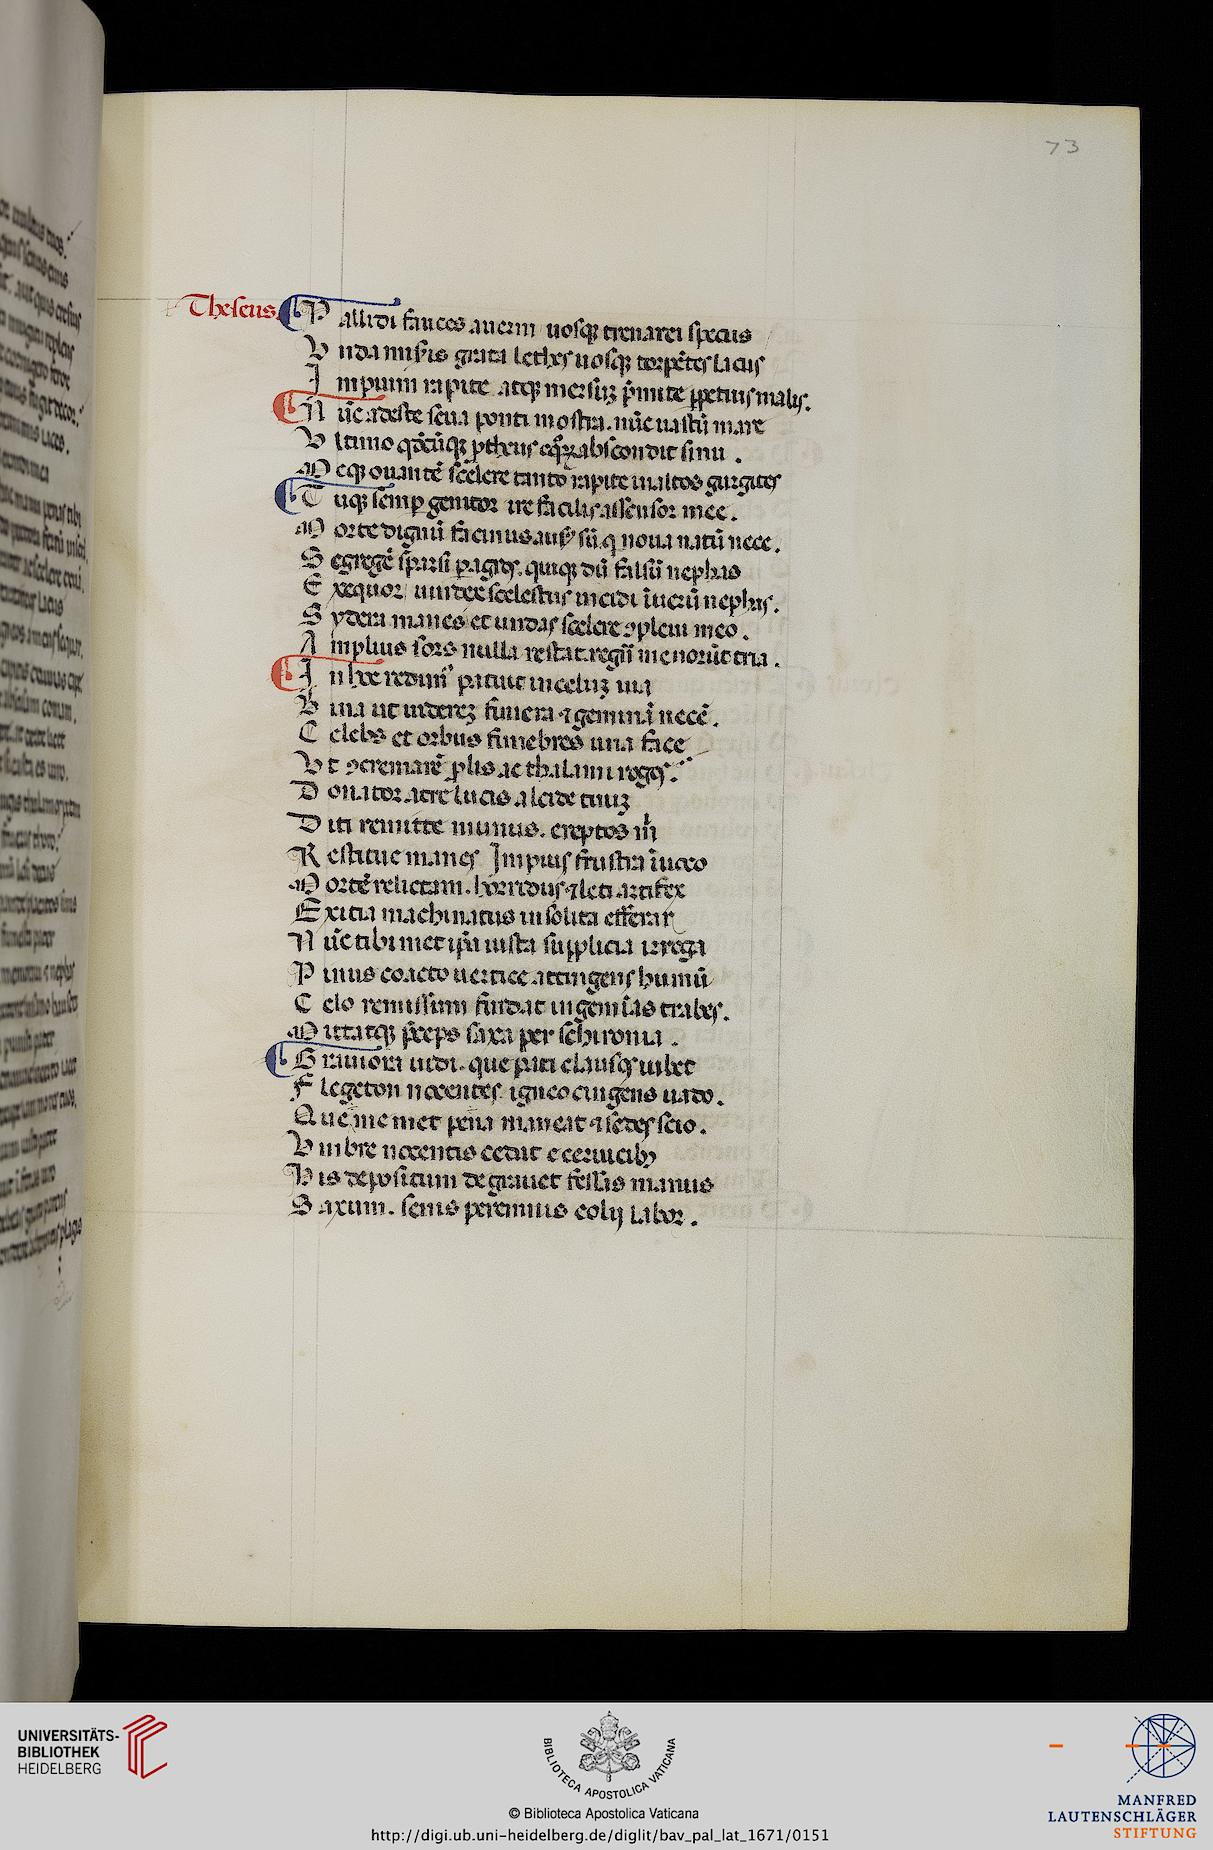 73
Theseus
Pallidi fauces auerni uosq; trenarei specus
Vnda miseris grata lethes uosq; torpētes lacus
Impium rapite atq; mersuꝫ p̄mite ꝑpetuis malis.
Nūc adeste seua ponti mostra. nūc uastū mare
Vltimo qdcūq; ꝓtheus eqꝝ abscondit sinu .
Meq; ouantē scelere tanto rapite in altos gurgites
Tuq; semꝑ genitor ire facilis assensor mee .
Morte dignū facinus ausꝰ sū. q noua natū nece .
Segregē sparsi ꝑ agros. quiq; dū falsū nephas
Exequor uindex scelestus incidi ī uerū nephas .
Sydera manes et undas scelere ꝯpleui meo .
Amplius sors nulla restat. regū me norūt tria .
In hoc redimꝰ patuit in celuꝫ uia
Bina ut uidereꝫ funera ⁊ geminā necē .
Celebs et orbus funebres una face
Vt ꝯcremarē ꝓlis ac thalami rogos.
Donator atre lucis alcide tuuꝫ
Diti remitte munus . ereptos m̄
Restitue manes Impius frustra īuoco
Mortē relictam . horridus ⁊ leti artifex
Exitia machinatus insolita efferar
Nūc tibimet ip̄a iusta supplicia irroga
Pinus coacto uertice attingens humū
Celo remissum findat in gemīas trabes .
Mittatq; p̄ceps saxa per schironia .
Grauiora uidi . que pati clausos iubet
Flegeton nocentes igneo cingens uado .
Que memet pena maneat ⁊ sedes scio .
Vmbre nocentis cedat e ceruicibꝰ
His depositum degrauet fessis manus
Saxum . senis peremnis eolij labor .
UNIVERSITÄTS-
BIBLIOTHEK
HEIDELBERG
BIBLIOTECA APOSTOLICA VATICANA
© Biblioteca Apostolica Vaticana
http://digi.ub.uni-heidelberg.de/diglit/bav_pal_lat_1671/0151
MANFRED
LAUTENSCHLÄGER
STIFTUNG